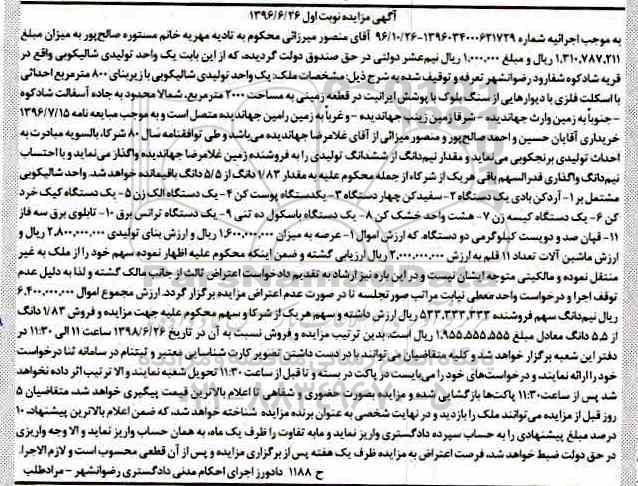 آگهی مزایده نوبت اول ۱۳۹۶/۶/۲۶
به موجب اجرائیه شماره ۱۳۹۶۰۳۴۰۰۰۶۳۱۷۲۹-۹۶/۱۰/۲۶ آقای منصور میرزائی محکوم به تادیه مهریه خانم مستوره صالح‌پور به میزان مبلغ
۱,۳۱۰,۷۸۷,۲۱۱ ریال و مبلغ ۱,۰۰۰,۰۰۰ ریال نیم‌عشر دولتی در حق صندوق دولت گردیده، که از این بابت یک واحد تولیدی شالیکوبی واقع در
قریه شادکوه شفارود رضوانشهر تعرفه و توقیف شده به شرح ذیل: مشخصات ملک: یک واحد تولیدی شالیکوبی با زیربنای ۸۰۰ مترمربع احداثی
با اسکلت فلزی با دیوارهایی از سنگ بلوک با پوشش ایرانیت در قطعه زمینی به مساحت ۲۰۰۰ مترمربع، شمالا محدود به جاده آسفالت شادکوه
- جنوباً به زمین وارث جهاندیده - شرقا زمین زینب جهاندیده - و غرباً به زمین رامین جهاندیده متصل است و به موجب مبایعه نامه ۱۳۹۶/۷/۱۵
خریداری آقایان حسین و احمد صالح‌پور و منصور میرزائی از آقای غلامرضا جهاندیده می‌باشد و طی توافقنامه سال ۸۰ شرکا، بالسویه مبادرت به
احداث تولیدی برنجکوبی می‌نماید و مقدار نیم‌دانگ از ششدانگ تولیدی را به فروشنده زمین غلامرضا جهاندیده واگذار می‌نماید و با احتساب
نیم‌دانگ واگذاری قدرالسهم باقی هر یک از شرکاء از جمله محکوم علیه به مقدار ۱/۸۳ دانگ از ۵/۵ دانگ باقیمانده خواهد شد. واحد شالیکوبی
مشتمل بر ۱- آردکن بادی یک دستگاه ۲- سفیدکن چهار دستگاه ۳- یکدستگاه پوست کن ۴- یک دستگاه الک زن ۵- یک دستگاه کیک خرد
کن ۶- یک دستگاه کیسه زن ۷- هشت واحد خشک کن ۸- یک دستگاه باسکول ده تنی ۹- یک دستگاه ترانس برق ۱۰- تابلوی برق سه فاز
۱۱- قپان صد و دویست کیلوگرمی دو دستگاه، که ارزش اموال ۱- عرصه به میزان ۱,۶۰۰,۰۰۰,۰۰۰ ریال و ارزش بنای تولیدی ۲,۸۰۰,۰۰۰,۰۰۰ ریال و
ارزش ماشین آلات تعداد ۱۱ قلم به ارزش ۲,۰۰۰,۰۰۰,۰۰۰ ریال ارزیابی گشته و ضمن اینکه محکوم علیه اظهار نموده سهم خود را از ملک به غیر
منتقل نموده و مالکیتی متوجه ایشان نیست و در این باره نیز ارشاد به تقدیم دادخواست اعتراض ثالث از جانب مالک گشته و لذا به دلیل عدم
توقف اجرا و درخواست واحد معطی نیابت مراتب صورتجلسه تا در صورت عدم اعتراض مزایده برگزار گردد. ارزش مجموع اموال ۶,۴۰۰,۰۰۰,۰۰۰
ریال نیم‌دانگ سهم فروشنده ۵۳۳,۳۳۳,۳۳۳ ریال ارزش داشته و سهم هر یک از شرکا و سهم محکوم علیه جهت مزایده و فروش ۱/۸۳ دانگ
از ۵,۵ دانگ معادل مبلغ ۱,۹۵۵,۵۵۵,۵۵۵ ریال است. بدین ترتیب مزایده و فروش نسبت به آن در تاریخ ۱۳۹۸/۶/۲۶ ساعت ۱۱ الی ۱۱:۳۰ در
دفتر این شعبه برگزار خواهد شد و کلیه متقاضیان می‌توانند با در دست داشتن تصویر کارت شناسایی معتبر و ثبتنام در سامانه ثنا درخواست
خود را ارائه نمایند، و درخواست‌های خود را می‌بایست در پاکت در بسته و تا قبل از ساعت ۱۱:۳۰ تحویل شعبه نمایند و الا ترتیب اثر داده نخواهد
شد پس از ساعت ۱۱:۳۰ پاکت‌ها بازگشایی شده و مزایده بصورت حضوری و شفاهی با اعلام بالاترین قیمت پیگیری خواهد شد، متقاضیان ۵
روز قبل از مزایده می‌توانند ملک را بازدید و در نهایت شخصی به عنوان برنده مزایده شناخته خواهد شد، که ضمن اعلام بالاترین پیشنهاد، ۱۰
درصد مبلغ پیشنهادی را به حساب سپرده دادگستری واریز نماید و مابه تفاوت را ظرف یک ماه، به همان حساب واریز نماید و الا وجه واریزی
در حق دولت ضبط خواهد شد، فرصت اعتراض به مزایده ظرف یک هفته پس از برگزاری مزایده و پس از آن قطعی محسوب است و لازم الاجرا.
ح ۱۱۸۸ دادورز اجرای احکام مدنی دادگستری رضوانشهر - مرادطلب